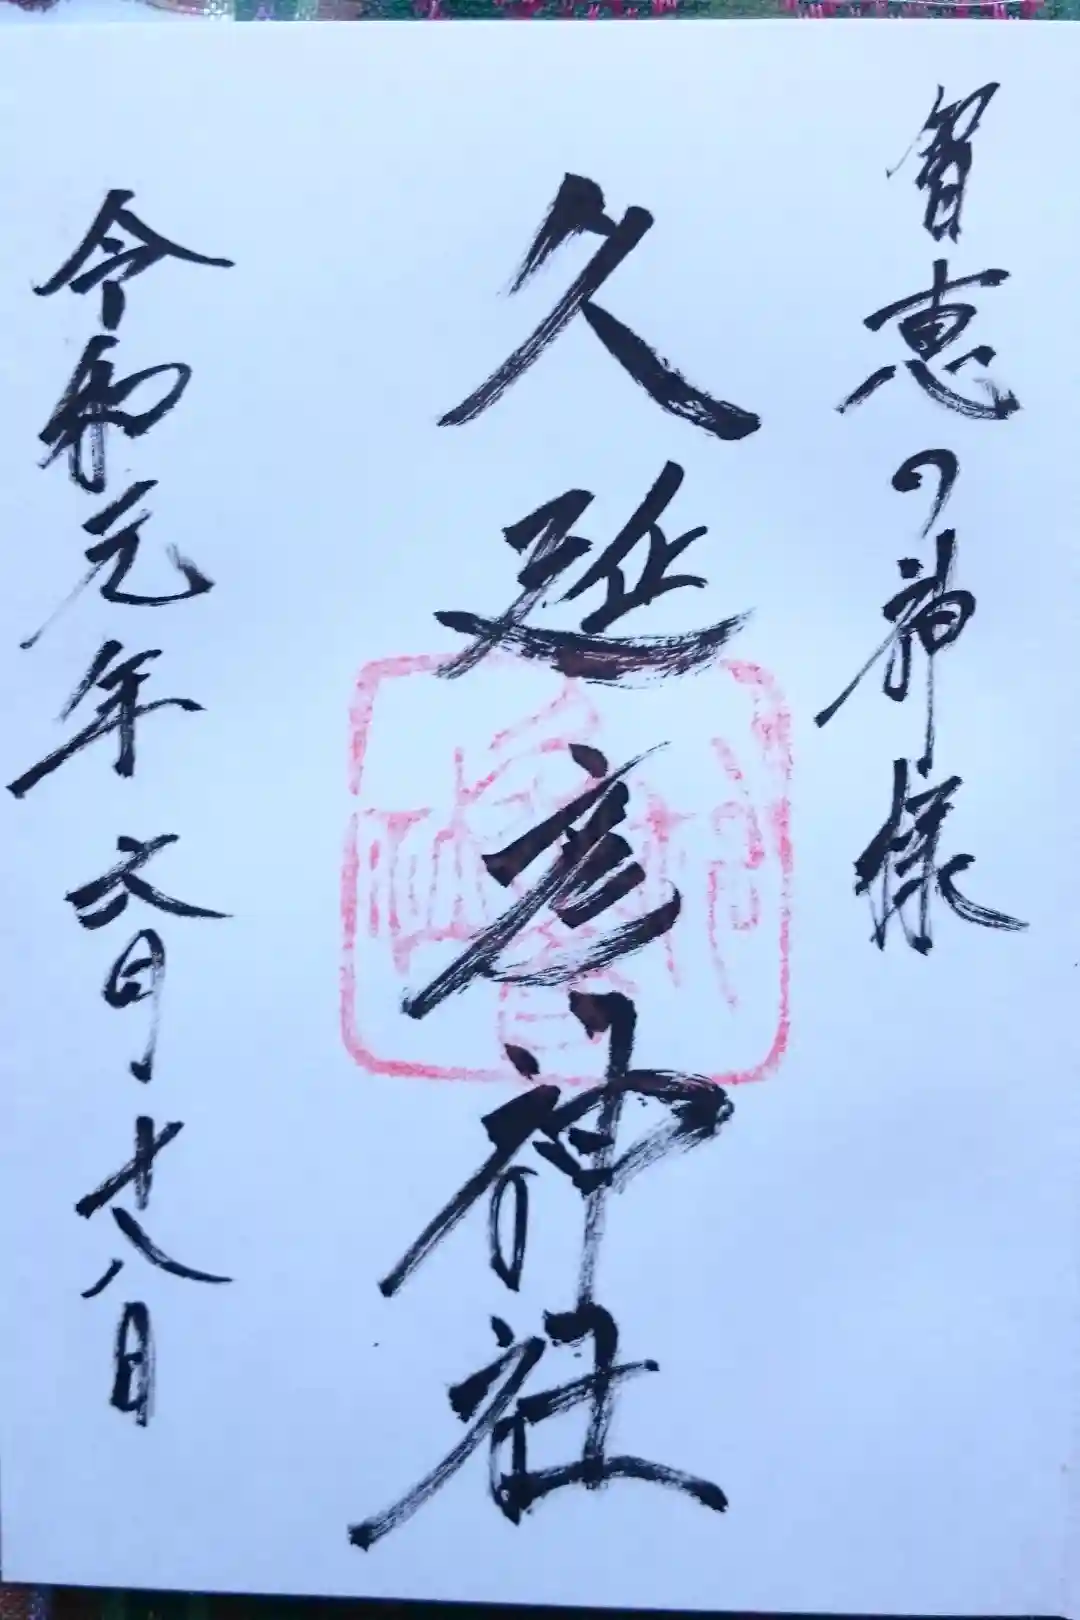 智恵の神様
久延彦神社
令和元年六月十八日